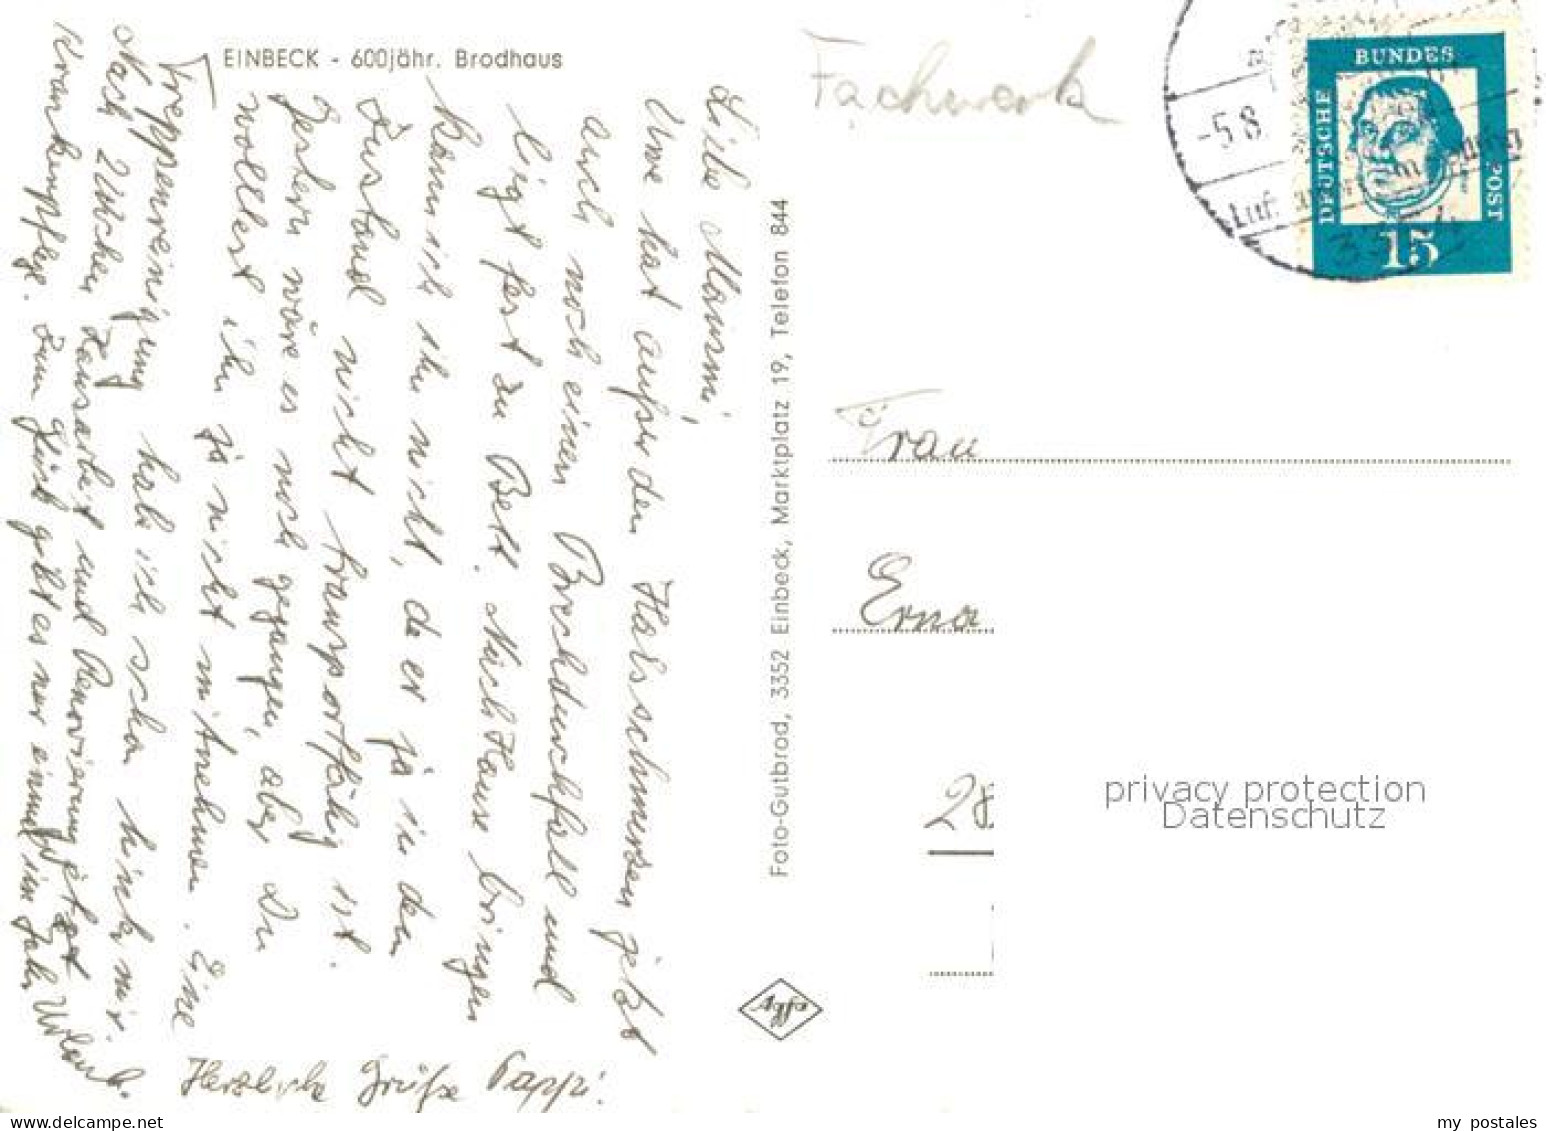 EINBECK - 600jähr. Brodhaus
Liebe Mausmi,
Uwe hat außer den Halsschmerzen jetzt
auch noch einen Brechdurchfall und
liegt fest zu Bett. Nach Hause bringen
kann ich ihn nicht, da er ja in dem
Zustand nicht transportfähig ist.
Gestern wäre es noch gegangen, aber Du
wolltest ihn ja nicht mitnehmen. Eine
Treppenreinigung habe ich schon hinter mir.
Nach 2 Wochen Hausarbeit und Renovierung jetzt
Krankenpflege. Zum Glück gibt es nur einmal im Jahr Urlaub.
Herzliche Grüße Pappi.
Foto-Gutbrod, 3352 Einbeck, Marktplatz 19, Telefon 844
Agfa
Fachwerk
-5.8
Luf
DEUTSCHE
BUNDES
POST
15
Frau
Erna
28
privacy protection
Datenschutz
my postales